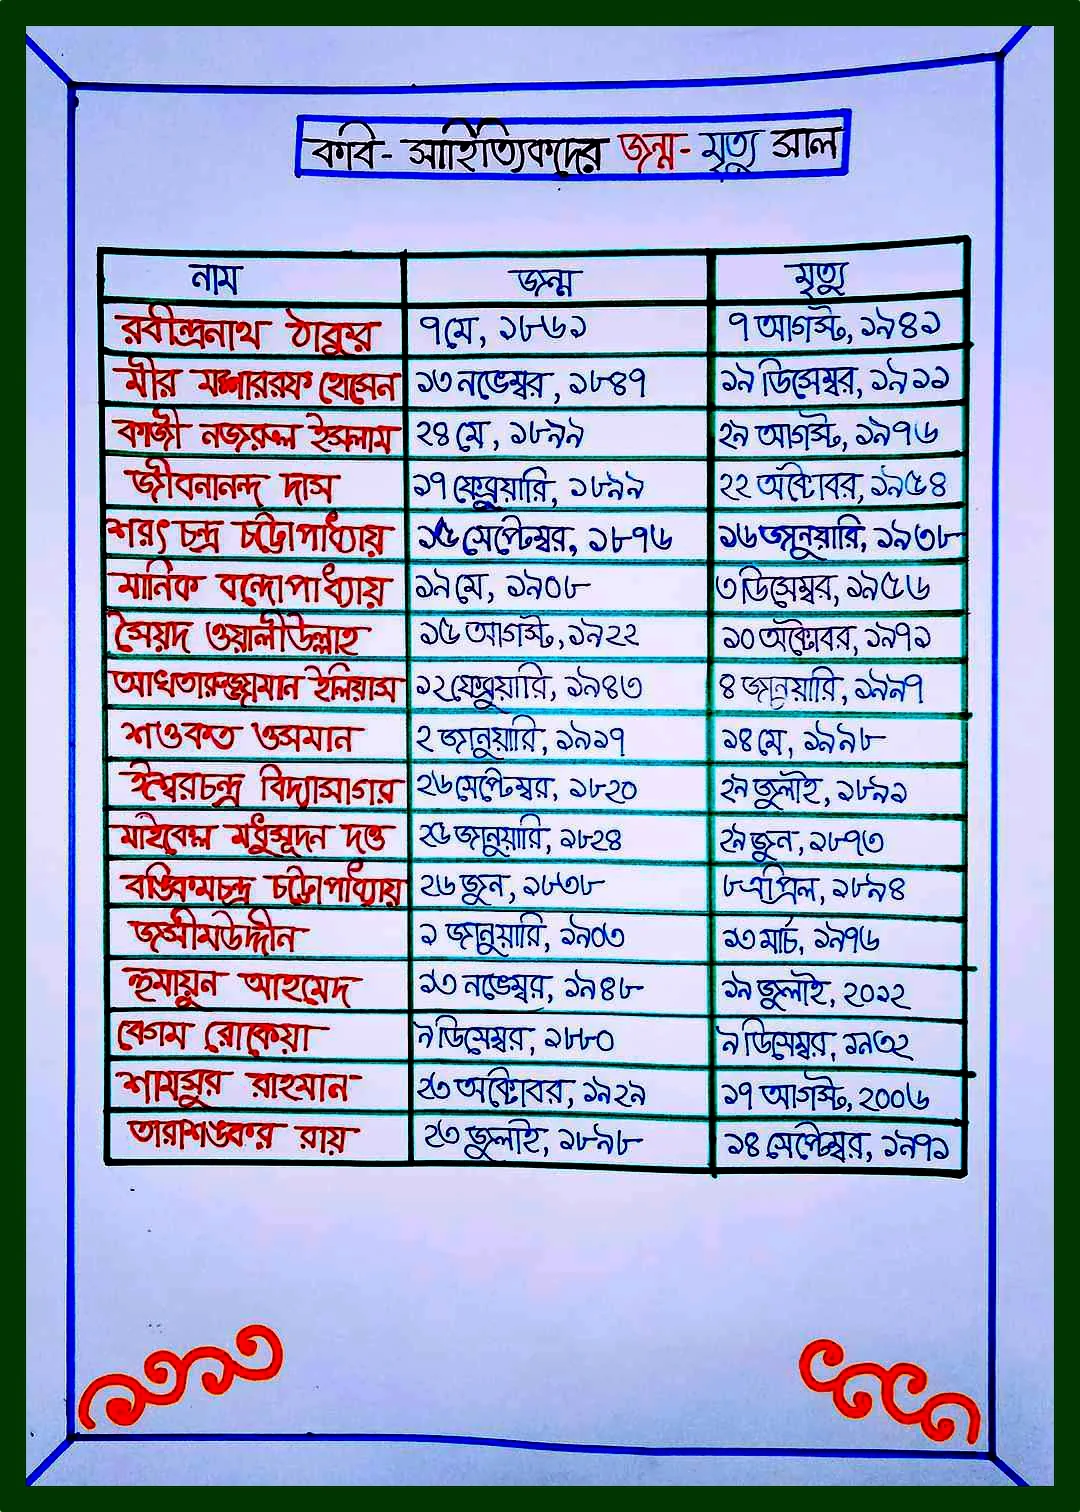 কবি-সাহিত্যিকদের জন্ম-মৃত্যু সাল
নাম জন্ম মৃত্যু
রবীন্দ্রনাথ ঠাকুর ৭ মে, ১৮৬১ ৭ আগস্ট, ১৯৪১
মীর মশাররফ হোসেন ১৩ নভেম্বর, ১৮৪৭ ১৯ ডিসেম্বর, ১৯১১
কাজী নজরুল ইসলাম ২৪ মে, ১৮৯৯ ২৯ আগস্ট, ১৯৭৬
জীবনানন্দ দাস ১৭ ফেব্রুয়ারি, ১৮৯৯ ২২ অক্টোবর, ১৯৫৪
শরৎ চন্দ্র চট্টোপাধ্যায় ১৫ সেপ্টেম্বর, ১৮৭৬ ১৬ জানুয়ারি, ১৯৩৮
মানিক বন্দোপাধ্যায় ১৯ মে, ১৯০৮ ৩ ডিসেম্বর, ১৯৫৬
সৈয়দ ওয়ালীউল্লাহ ১৫ আগস্ট, ১৯২২ ১০ অক্টোবর, ১৯৭১
আখতারুজ্জামান ইলিয়াস ১২ ফেব্রুয়ারি, ১৯৪৩ ৪ জানুয়ারি, ১৯৯৭
শওকত ওসমান ২ জানুয়ারি, ১৯১৭ ১৪ মে, ১৯৯৮
ঈশ্বরচন্দ্র বিদ্যাসাগর ২৬ সেপ্টেম্বর, ১৮২০ ২৯ জুলাই, ১৮৯১
মাইকেল মধুসূদন দত্ত ২৫ জানুয়ারি, ১৮২৪ ২৯ জুন, ১৮৭৩
বঙ্কিমচন্দ্র চট্টোপাধ্যায় ২৬ জুন, ১৮৩৮ ৮ এপ্রিল, ১৮৯৪
জসীমউদ্দীন ১ জানুয়ারি, ১৯০৩ ১৩ মার্চ, ১৯৭৬
হুমায়ুন আহমেদ ১৩ নভেম্বর, ১৯৪৮ ১৯ জুলাই, ২০১২
বেগম রোকেয়া ৯ ডিসেম্বর, ১৮৮০ ৯ ডিসেম্বর, ১৯৩২
শামসুর রাহমান ২৩ অক্টোবর, ১৯২৯ ১৭ আগস্ট, ২০০৬
তারাশঙ্কর রায় ২৩ জুলাই, ১৮৯৮ ১৪ সেপ্টেম্বর, ১৯৭১